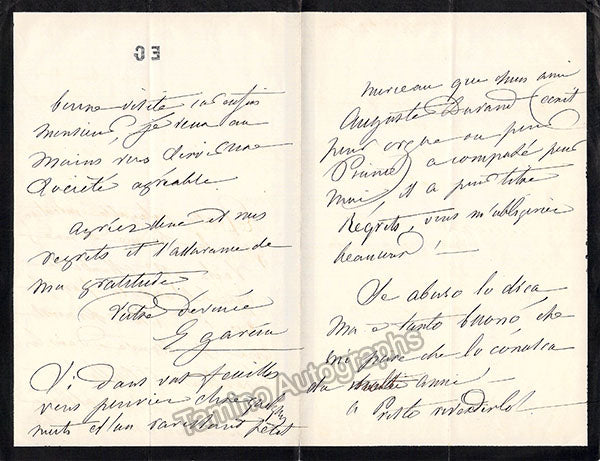 bonne visite
Monsieur, je
Moins vous
Société agréable.
Agréez donc et mes
regrets et l'assurance de
ma gratitude.
Votre dévouée
E Garcia
Si dans vos feuilles
vous pouviez
mots et un ravissant petit
morceau que mon ami
Auguste Durand (écrit
pour orgue ou pour
Piano) a composé pour
moi, il a pour titre
Regrets, vous m'obligeriez
beaucoup! —
Se abuso lo dica
Ma è tanto buono che
mi pare che lo conosca
da molti anni
a Presto rivederlo!
EG
Tamino Autographs